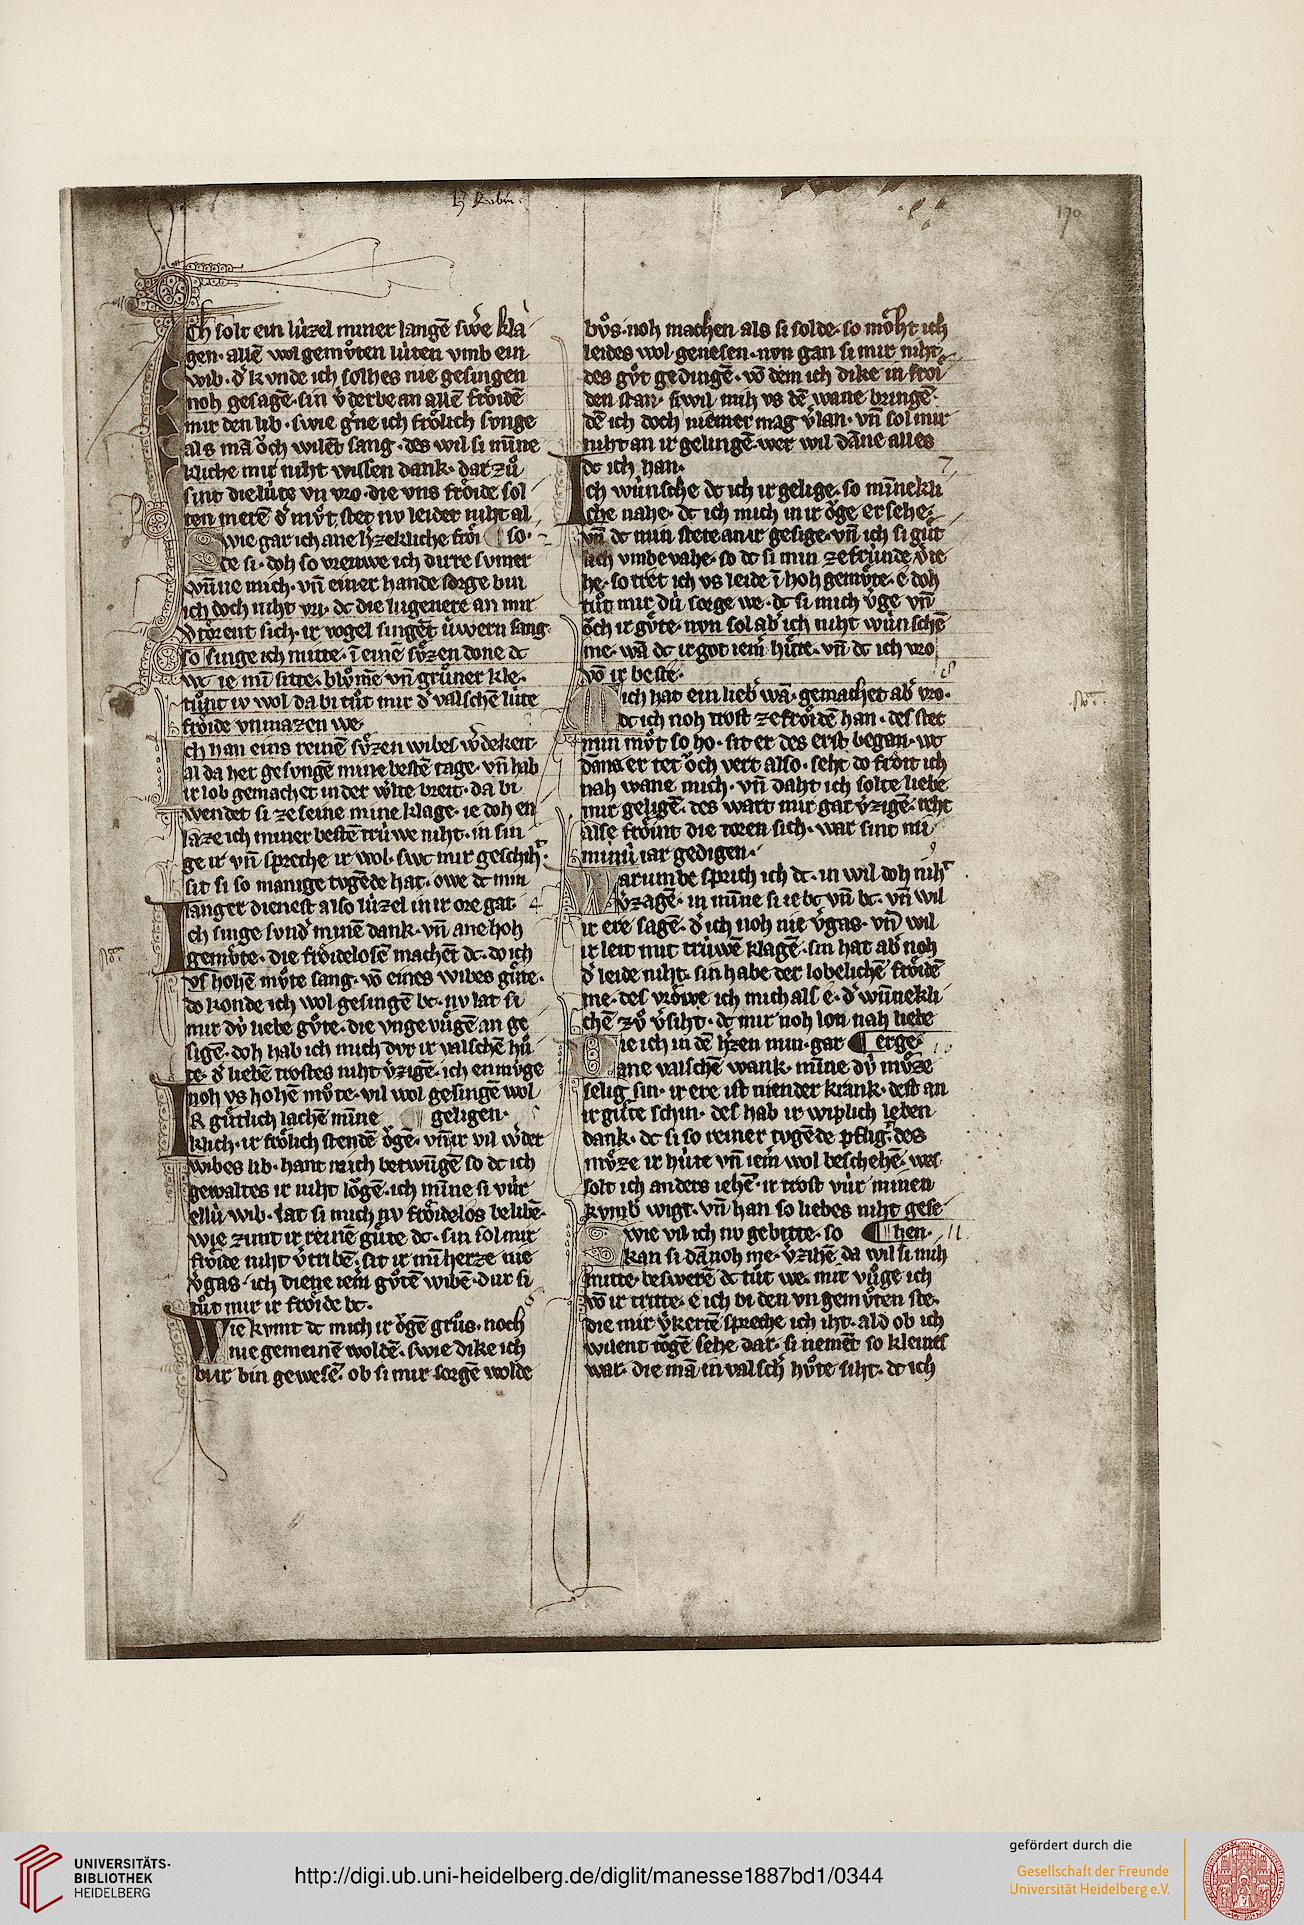 H Rubin.
170
Ich solt ein lùzel miner langē swe᷑e kla
gen· allē wolgemůten lùten vmb ein
wib· d᷑ kvnde ich solhes nie gesingen
noh gesagē· sin v᷑derbe an allē frȏidē
mir den lib· swie g᷑ne ich frȏlich svnge
als mā ȏch wilēt sang· des wil si mīne
kliche mir niht wissen dank· dar zů
sint die lùte vn vro· die vns frȏide sol
ten merē d᷑ mv̊t stet nv leider niht al
Swie gar ich ane h᷑zekliche frȏi ¶ so·
de si· doh so vreuwe ich dur svmer
wūne mich· vn̄ einer hande sorge bin
ich doch niht vri· dc die lugenere an mir
d᷑tȏrent sich· ir vogel singēt ùwern sang
so singe ich mitte· ī einē sv̊zen done dc
wc ie mī sitte· blv̊mē vn̄ grůner kle·
tůnt iv wol da bi tůt mir d᷑ valschē lùte
frȏide vnmazen we·
Ich han eins reinē sv̊zen wibes w᷑dekeit
al da her gesvngē mine bestē tage· vn̄ hab
ir lob gemachet in der w᷑lte breit· da bi
wendet si ze seine mine klage· ie doh en
laze ich miner bestē trùwe niht· in sin
ge ir vn̄ spreche ir wol· swc mir geschiht·
sit si so manige tvgēde hat· owe dc min
langer dienest also lùzel in ir ore gat· 4
Ich singe svnd᷑ minē dank· vn̄ ane hoh
gemv̊te· die frȏidelosē machēt dc· do ich
vs hohē mv̊te sang· vō eines wibes gůte·
do konde ich wol gesingē bc· nv lat si
mir dù liebe gůte· die vngevůgē an ge
sigē· doh hab ich mich dvr ir valschē hů
te· d᷑ liebē trostes niht v᷑zigē· ich en mv̊ge
noh vs hohē mv̊te· vil wol gesingē wol
IR gůtlich lachē mīne ¶ geligen·
klich· ir frȏlich stendē ȏgē· vn̄ ir vil w᷑der
wibes lib· hant mich betwūgē so dc ich
gewaltes ir niht lȏgē· ich mīne si vùr
ellù wib· lat si mich nv frȏidelos belibē·
wie zimt ir reinē gůte dc· sin sol mir
frȏide niht v᷑tribē· sit ir mī herze nie
v᷑gas· ich diene iem᷑ gůtē wibē· dur si
tůt mir ir frȏide bc·
Wie kvmt dc mich ir ȏgē grůs· noch
nie gemeinē woldē· swie dike ich
bi ir bin gewesē· ob si mir sorgē wolde
bv̊s· noh machen als si solde· so mȏht ich
leides wol genesen· nvn gan si mir niht
des gůt gedingē· vō dem ich dike in frȏi
den stan· si wil mih vs dē wane bringē·
dē ich doch niemer mag v᷑lan· vn̄ sol mir
niht an ir gelingē· wer wil dāne alles
dc ich han· 7
Ich wùnsche dc ich ir gelige· so mīnekli
che nahe· dc ich mich in ir ȏge ersehe·
vn̄ dc min stete an ir gesige· vn̄ ich si gùt
lich vmbevahe· so dc si min ze frùnde v᷑ie
he· so tret ich vs leide ī hoh gemv̊te· e doh
tůt mir dù sorge we· dc si mich v᷑ge vn̄
ȏch ir gůte· nvn sol ab᷑ ich niht wùnschē
me· wā dc ir got iem᷑ hůte· vn̄ dc ich vro
vō ir beste· 8
Mich hat ein lieb᷑ wā· gemachet ab᷑ vro·
dc ich noh trost ze frȏidē han· des stet
min mv̊t so ho· sit er des erst began· wc
dāna er tet ȏch vert also· seht do frȏit ich
nah wane mich· vn̄ daht ich solte liebe
mir geligē· des wart mir gar v᷑zigē· reht
alse frȏint die toren sich· war sint mi
minù iar gedigen· 9
Warumbe sprich ich dc· in wil doh niht
v᷑zagē· in mīne si ie bc vn̄ bc· vn̄ wil
ir ere sagē· d᷑ ich noh nie v᷑gas· vn̄ wil
ir leit mit trùwē klagē· sin hat ab᷑ noh
d᷑ leide niht· sin habe der lobelichē frȏidē
me· des vrȏwe ich mich als e· d᷑ wūnekli
chē zů v᷑siht· dc mir noh lon nah liebe
Die ich in dē h᷑zen min· gar ¶ erge·
ane valschē wank· mīne dù mv̊ze
selig sin· ir ere ist niender krank· dest an
ir gůte schin· des hab ir wiplich leben
dank· dc si so reiner tvgēde pfligt· des
mv̊ze ir hùte vn̄ iem᷑ wol beschehē· wes
solt ich anders iehē· ir trost vùr minen
kvmb᷑ wigt· vn̄ han so liebes niht gese
Swie vil ich nv gebitte· so ¶ hen· 11
kan si dānoh me· v᷑zihē da wil si mih
mitte· beswerē dc tůt we· mit vůge ich
vō ir tritte· e ich bi den vngemv̊ten ste·
die mir v᷑kertē spreche ich iht· ald ob ich
wilent tȏgē sehe dar· si nemēt so kleines
war· die mā in valsch᷑ hv̊te siht· dc ich
UNIVERSITÄTS-
BIBLIOTHEK
HEIDELBERG
http://digi.ub.uni-heidelberg.de/diglit/manesse1887bd1/0344
gefördert durch die
Gesellschaft der Freunde
Universität Heidelberg e.V.